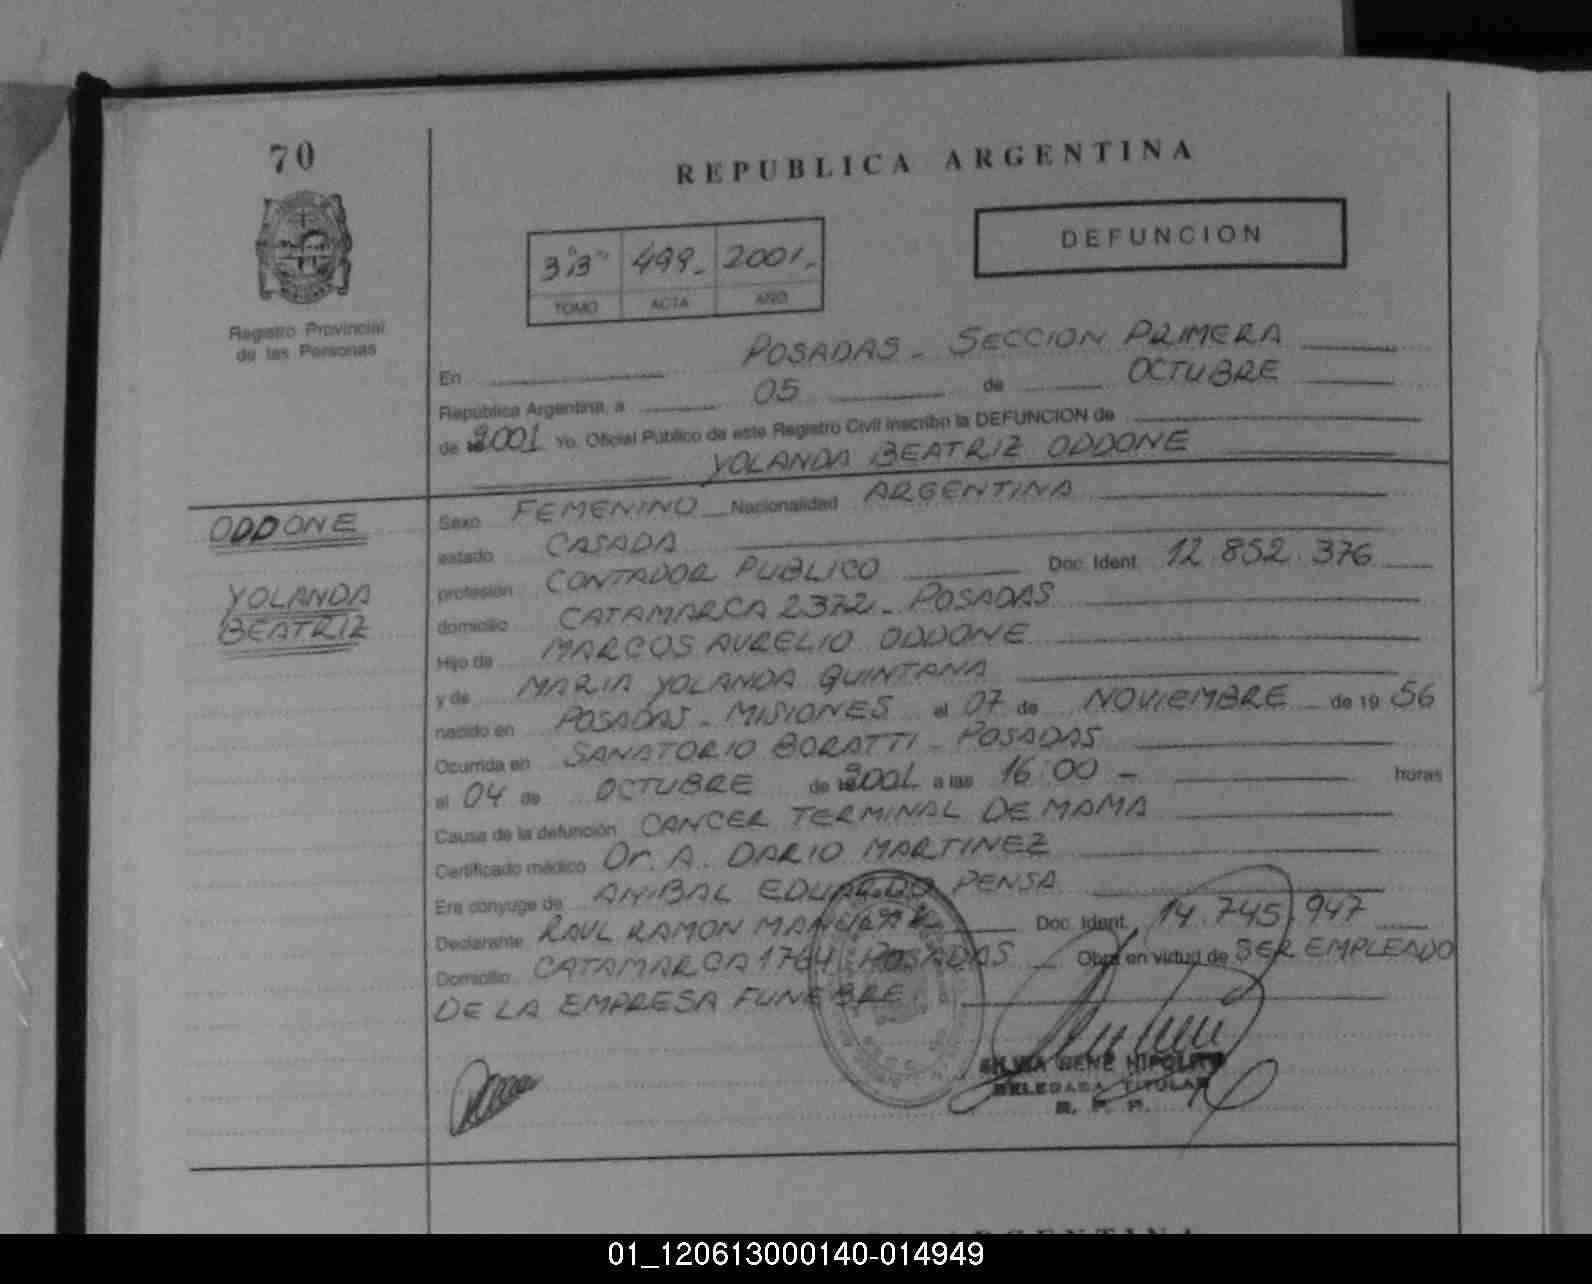 70
REPUBLICA ARGENTINA
DEFUNCION
3 "B" 499- 2001-
TOMO ACTA AÑO
Registro Provincial
de las Personas
En POSADAS - SECCION PRIMERA
República Argentina, a 05 de OCTUBRE
de 2001 Yo, Oficial Público de este Registro Civil inscribo la DEFUNCION de
YOLANDA BEATRIZ ODDONE
ODDONE
YOLANDA
BEATRIZ
Sexo FEMENINO Nacionalidad ARGENTINA
estado CASADA
profesión CONTADOR PUBLICO Doc. Ident. 12.852.376
domicilio CATAMARCA 2372 - POSADAS
Hijo de MARCOS AURELIO ODDONE
y de MARIA YOLANDA QUINTANA
nacido en POSADAS - MISIONES el 07 de NOVIEMBRE de 19 56
Ocurrida en SANATORIO BORATTI - POSADAS
el 04 de OCTUBRE de 2001 a las 16:00 - horas
Causa de la defunción CANCER TERMINAL DE MAMA
Certificado médico Dr. A. DARIO MARTINEZ
Era conyuge de ANIBAL EDUARDO PENSA
Declarante RAUL RAMON Doc. Ident. 14.745.947
Domicilio CATAMARCA 1764 POSADAS Obra en virtud de SER EMPLEADO
DE LA EMPRESA FUNEBRE
SILVIA RENE HIPOLITO
DELEGADA TITULAR
R. P. P.
ARGENTINA
01_120613000140-014949